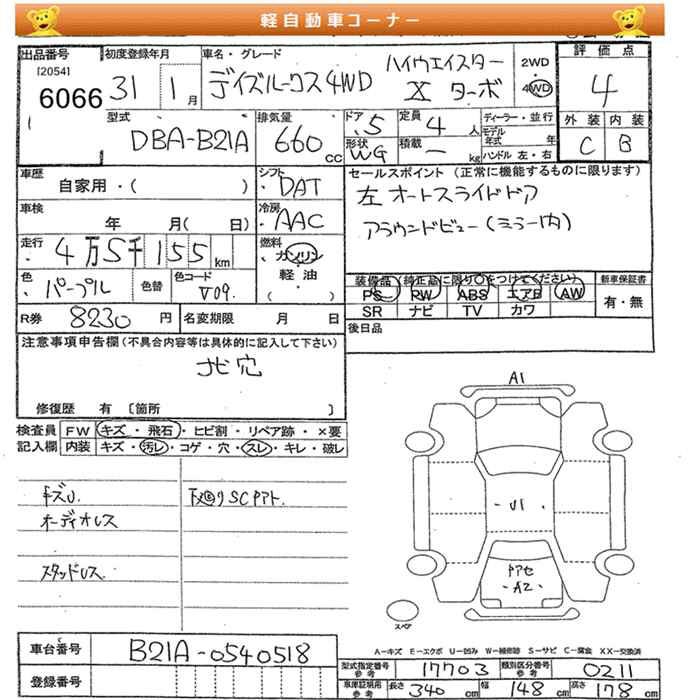 軽自動車コーナー
出品番号 初度登録年月 車名・グレード 2WD 評価点
[2054] 6066 31 1月 デイズルークス4WD ハイウェイスター X ターボ 4WD 4
型式 排気量 ドア 定員 ディーラー・並行 外装 内装
DBA-B21A 660 cc 5 4人 モデル年式 年 C B
形状 WG 積載 ー kg ハンドル 左・右
車歴 シフト セールスポイント(正常に機能するものに限ります)
自家用・( ) DAT 左オートスライドドア
車検 冷房 アラウンドビュー(ミラー内)
年 月( 日) AAC
走行 4万5千155km 燃料 ガソリン
軽油
( )
色 パープル 色替 色コード V09. 装備品(純正品に限り○をつけてください) 新車保証書
PS PW ABS エアB AW 有・無
SR ナビ TV カワ
R券 8230円 名変期限 月 日 後日品
注意事項申告欄(不具合内容等は具体的に記入して下さい)
ナビ穴
修復歴 有〔箇所 〕
検査員 FW キズ・飛石・ヒビ割・リペア跡・×要
記入欄 内装 キズ・汚レ・コゲ・穴・スレ・キレ・破レ
キズU. 下廻りSCアト.
オーディオレス
スタッドレス.
A1
U1
A2
スペア
A-キズ E-エクボ U-凹み W-補修跡 S-サビ C-腐食 XX-交換済
車台番号 B21A-0540518
登録番号
型式指定番号 参考 17703 類別区分番号 参考 0211
車庫証明用 参考 長さ 340cm 幅 148cm 高さ 178cm